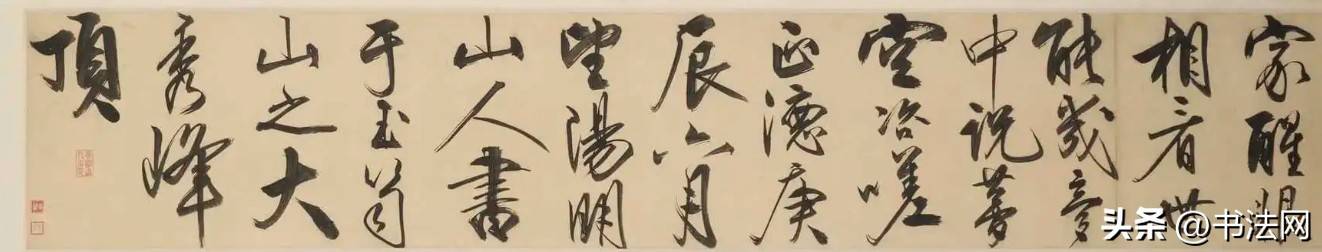 家醒眼
相看世
能幾夢
中説夢
空咨嗟
正德庚
辰六月
望陽明
山人書
于玉笥
山之大
秀峰
頂
头条 @书法网